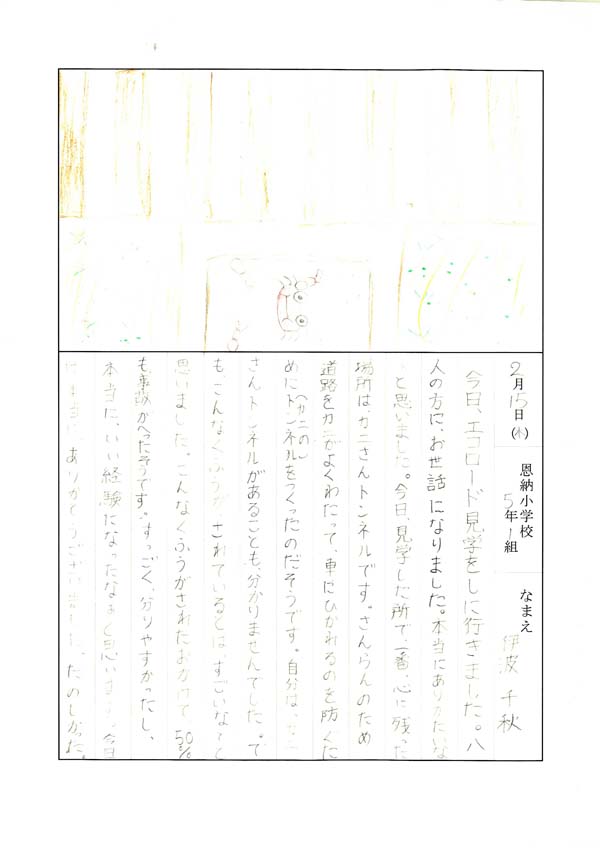 2月15日(木) 恩納小学校 5年1組 なまえ 伊波 千秋
今日、エコロード見学をしに行きました。八
人の方に、お世話になりました。本当にありがたいな
と思いました。今日、見学した所で、一番、心に残った
場所は、カニさんトンネルです。さんらんのため
道路をカニがよくわたって、車にひかれるのを防ぐた
めに(カニの)トンネルをつくったのだそうです。自分は、カニ
さんトンネルがあることも、分かりませんでした。で
も、こんなくふうが、されているとは、すごいな〜と
思いました。こんなくふうがされたおかげで50%
も事故がへったそうです。すっごく、分りやすかったし、
本当に、いい経験になったなぁ〜と思います。今日
ありがとうございました。たのしかった。